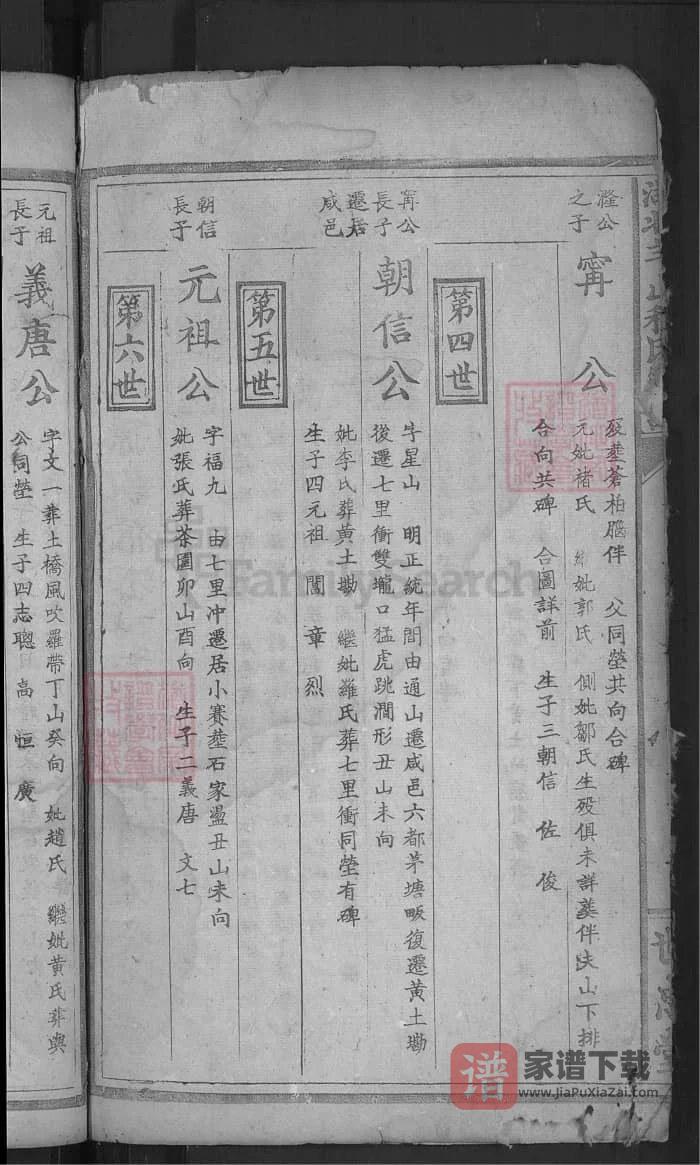 瀅公
之子
甯公
歿塟蒼柏腦伴 父同塋共向合碑
元妣褚氏 繼妣郭氏 側妣鄒氏生歿俱未詳葬伴夫山下排
合向共碑 合圖詳前 生子三朝信 佐 俊
第四世
甯公
長子
遷居
咸邑
朝信公
字星山 明正統年間由通山遷咸邑六都茅塘畈復遷黃土塝
後遷七里衝雙壠口猛虎跳澗形丑山未向
妣李氏葬黃土塝 繼妣羅氏葬七里衝同塋有碑
生子四元祖 閏 章 烈
第五世
朝信
長子
元祖公
字福九 由七里冲遷居小賽塟石家盪丑山未向
妣張氏葬茶園卯山酉向 生子二義唐 文七
第六世
元祖
長子
義唐公
字文一葬土橋風吹羅帶丁山癸向 妣趙氏 繼妣黃氏葬與
公同塋 生子四志聰 高 恒 廣
FamilySearch
谱 家谱下载
www.JiaPuXiaZai.com